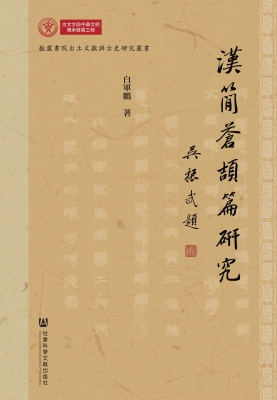 古文字與中華文明
傳承發展工程
嶽麓書院出土文獻與古史研究叢書
漢簡蒼頡篇研究
吳振武題
白軍鵬 著
社會科學文獻出版社